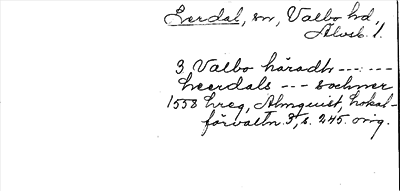 Leerdal, sn, Valbo hd,
Älvsb. l.
3 Valbo häradh ---:---
heerdals --- sochner
1558 hreg, Almquist, Lokal-
förvaltn. 3, s. 245. orig.